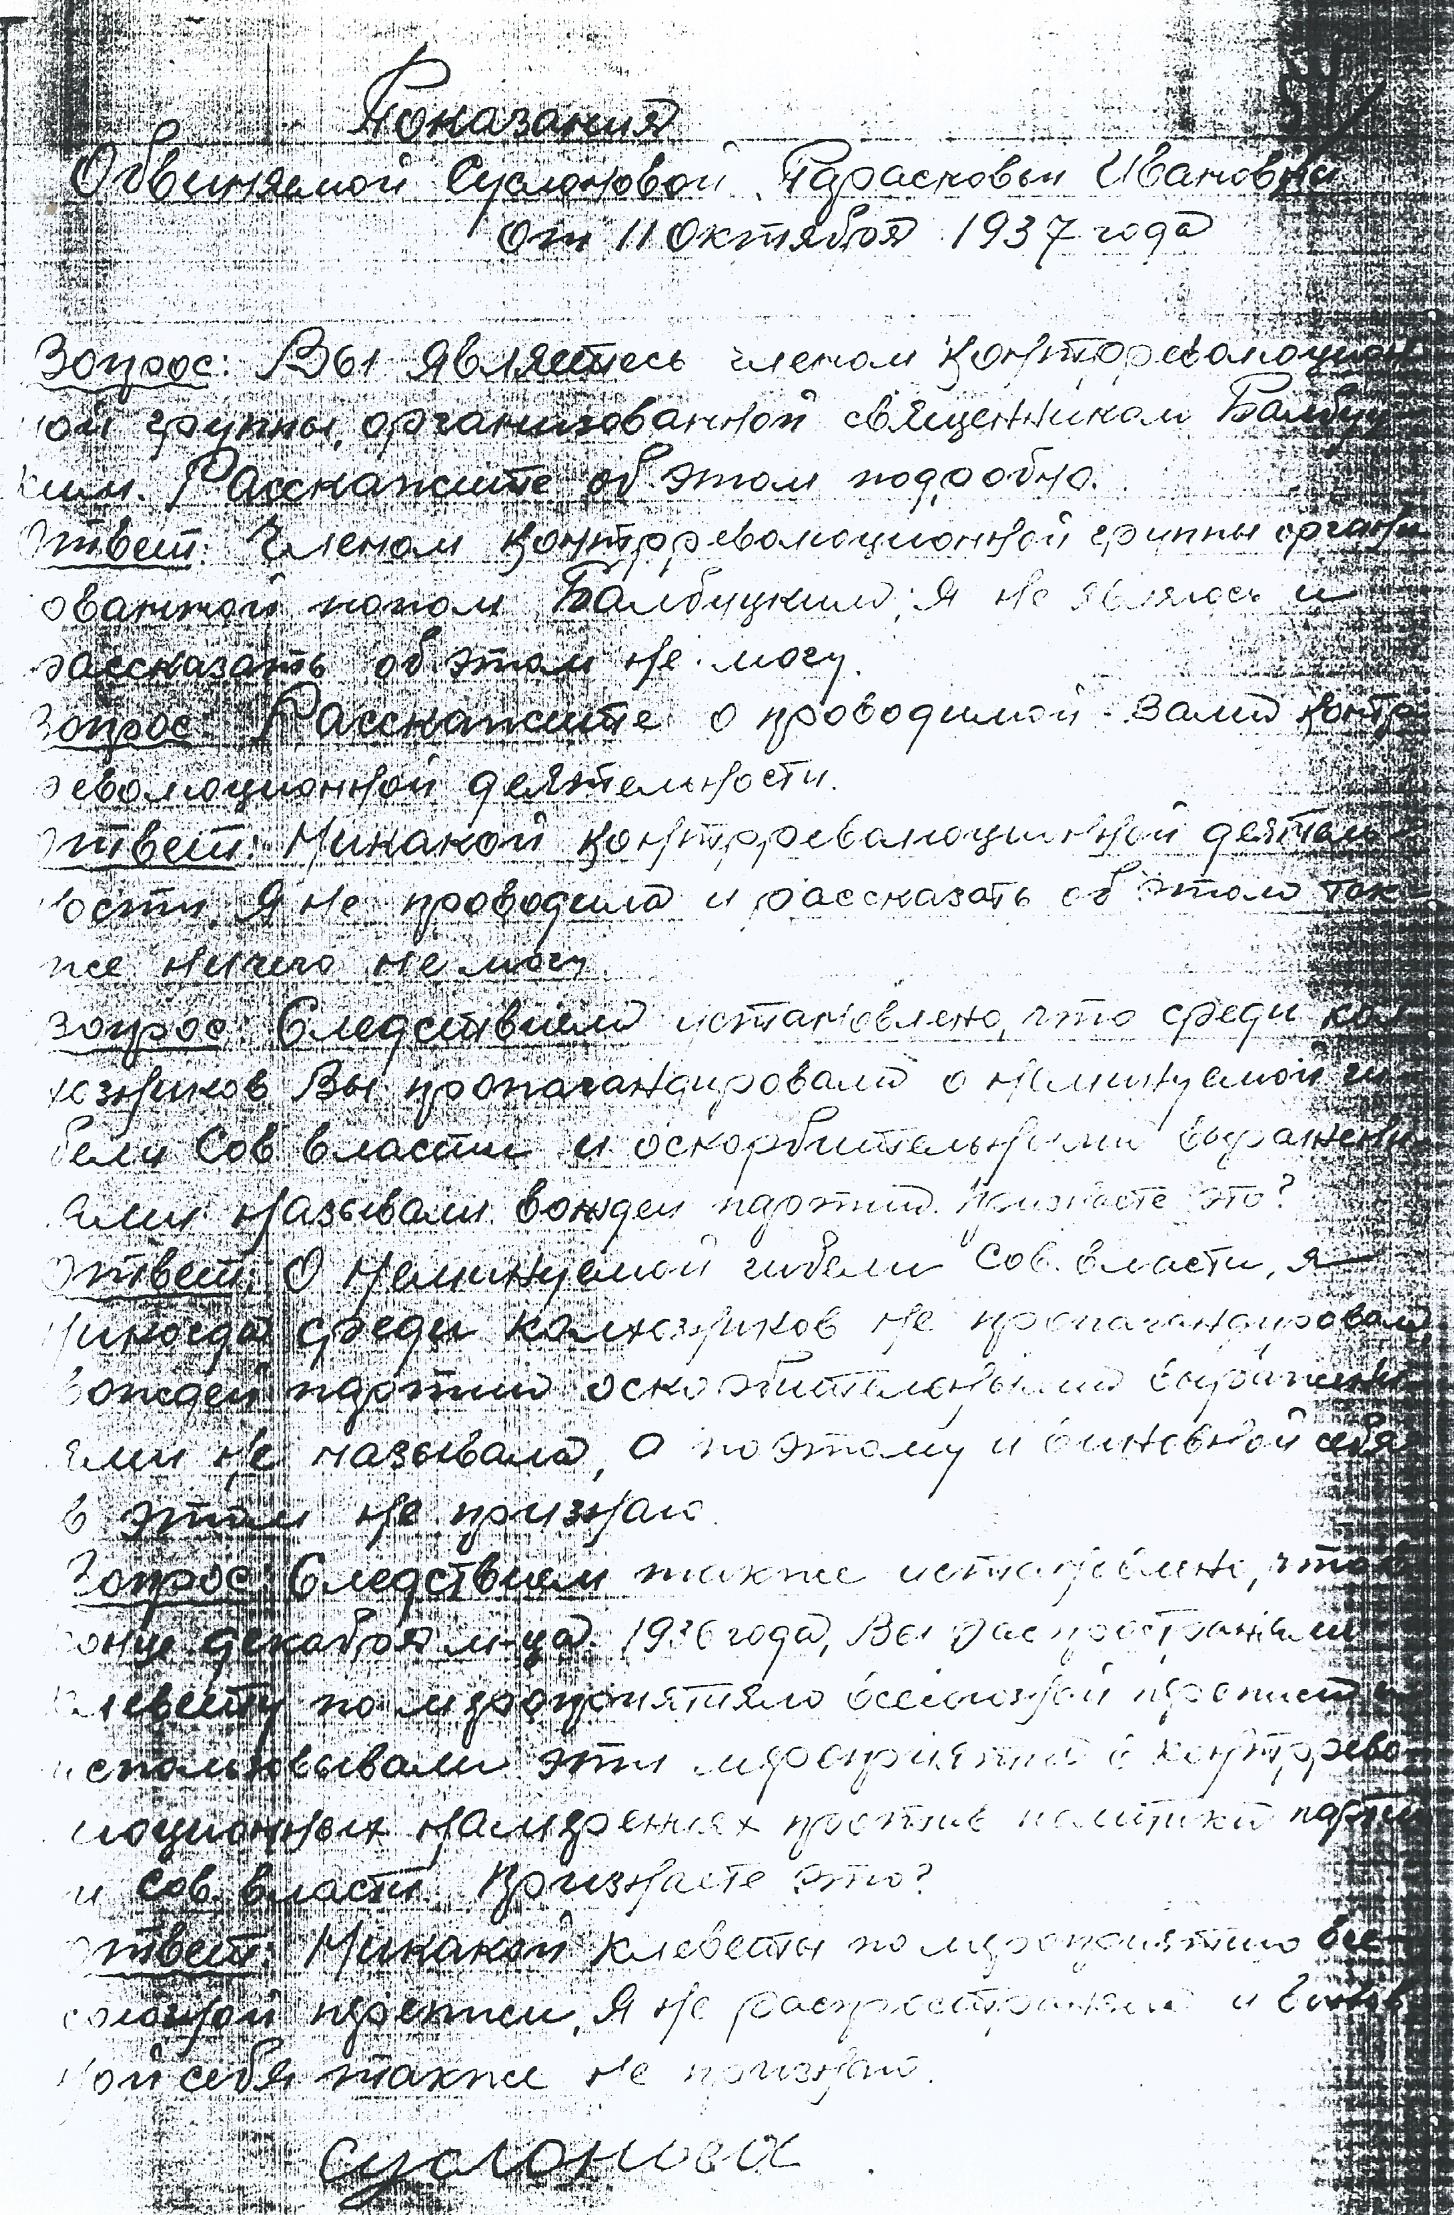 Показания
Обвиняемой Суслоновой Парасковьи Ивановны
от 11 октября 1937 года
Вопрос: Вы являетесь членом контрреволюцион
ной группы, организованной священником Балбуц
ким. Расскажите об этом подробно.
Ответ: Членом контрреволюционной группы органи
ованной попом Балбуцким, я не являюсь и
рассказать об этом не могу.
Вопрос: Расскажите о проводимой Вами контр
революционной деятельности.
Ответ: Никакой контрреволюционной деятель
ности, я не проводила и рассказать об этом так
же ничего не могу.
Вопрос: Следствием установлено, что среди кол
хозников Вы пропагандировали о неминуемой ги
бели Сов власти и оскорбительными выражени
ями называли вождей партии. Признаете это?
Ответ: О неминуемой гибели Сов. власти, я
никогда среди колхозников не пропагандировала,
вождей партии оскорбительными выражени
ями не называла, а поэтому и виновной себя
в этом не признаю.
Вопрос: Следствием также установлено, что в
конце декабря м-ца 1936 года, Вы распространяли
клевету по мероприятиям всесоюзной переписи и
использовывали эти мероприятия в контррево
люционных намерениях против политики партии
и Сов. власти. Признаете это?
Ответ: Никакой клеветы по мероприятию все
союзной переписи, я не распространяла и винов
ной себя также не признаю.
Суслонова